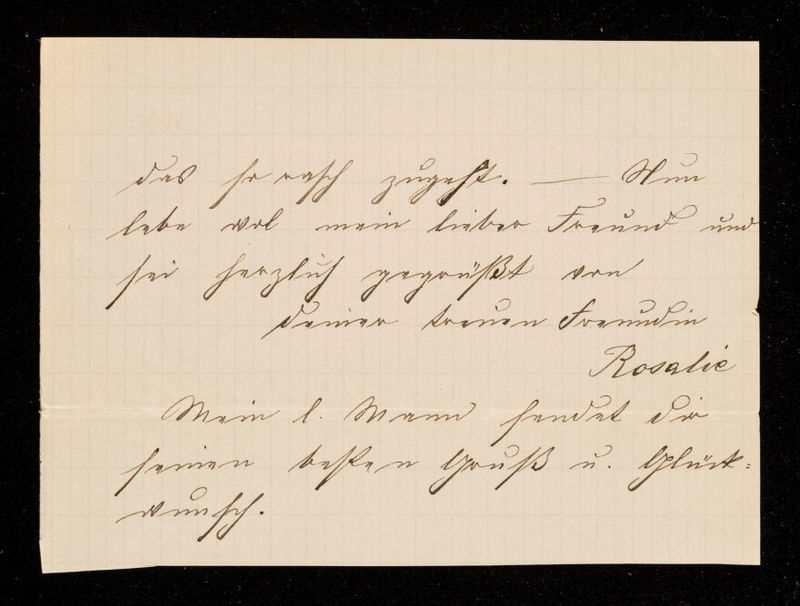 das so rasch zugeht. — Nun
lebe wol mein lieber Freund und
sei herzlich gegrüßt von
deiner treuen Freundin
Rosalie
Mein l. Mann sendet dir
seinen besten Gruß u. Glück-
wunsch.